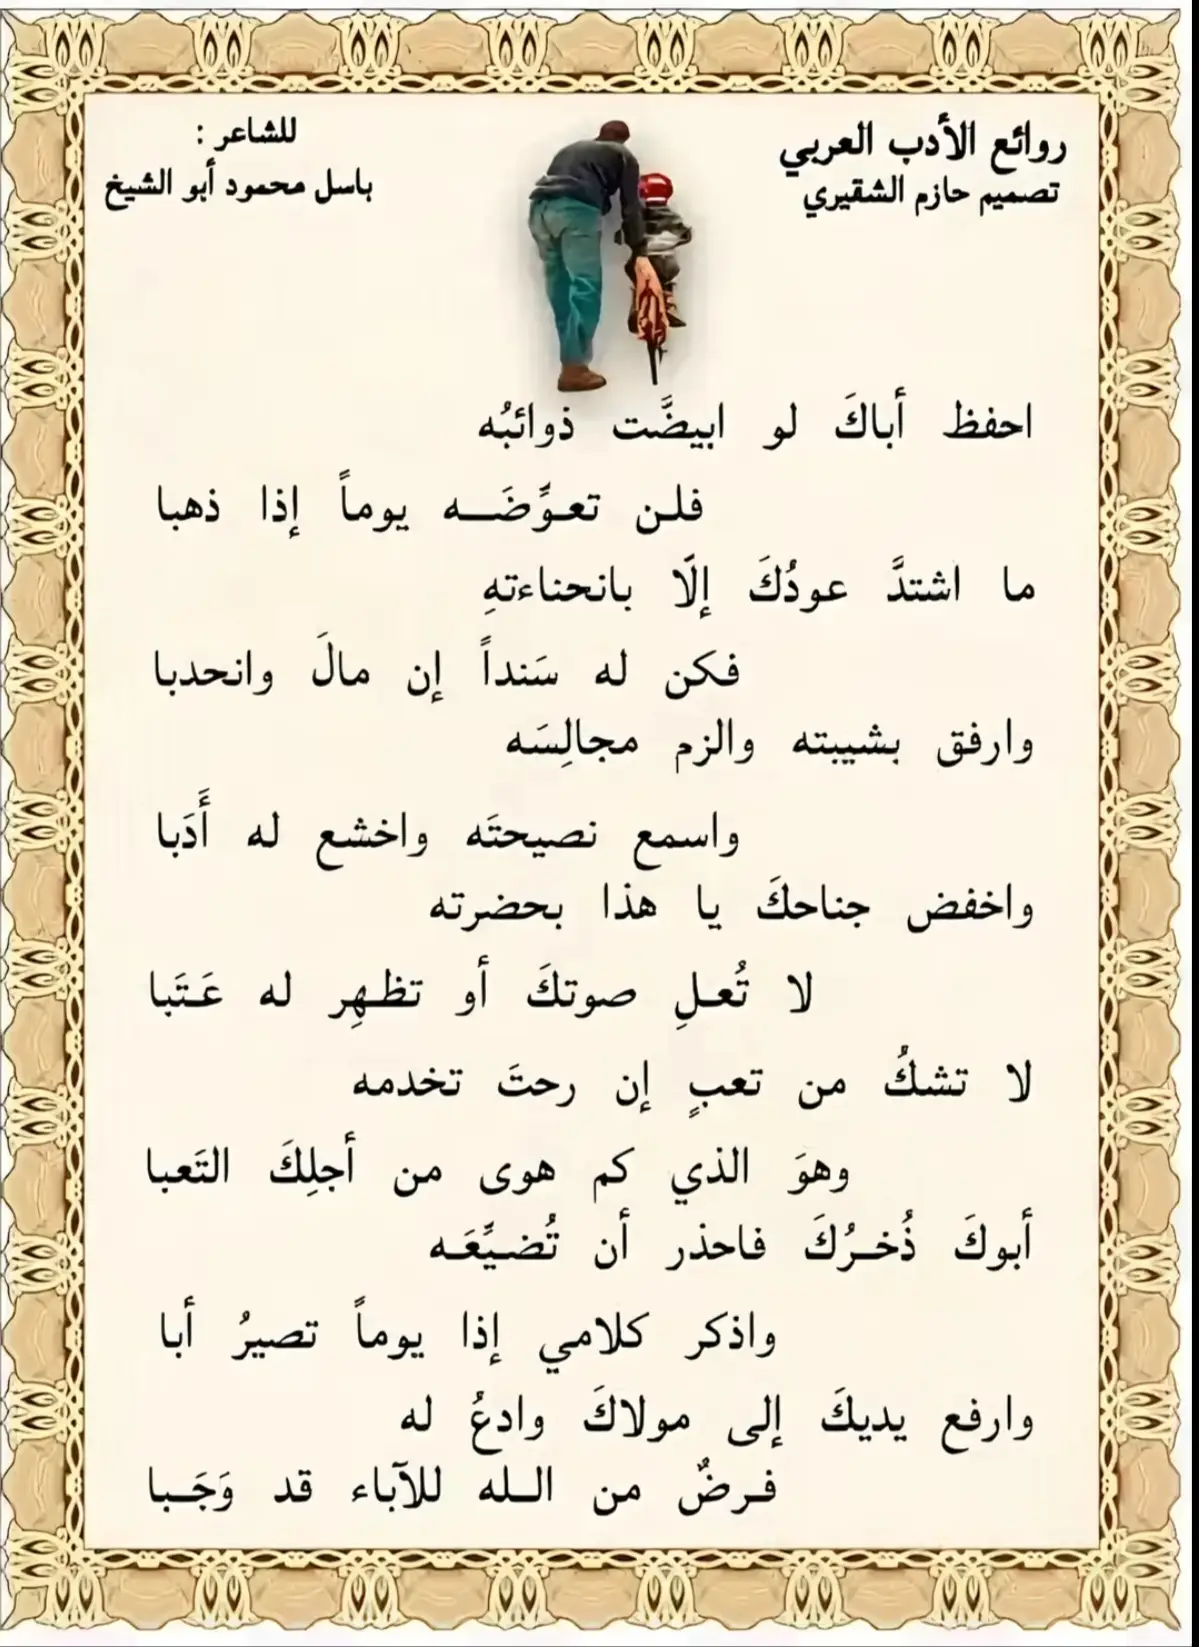 روائع الأدب العربي
تصميم حازم الشقيري
للشاعر :
باسل محمود أبو الشيخ
احفظ أباكَ لو ابيضَّت ذوائبُه
فلن تعوِّضَـــه يوماً إذا ذهبا
ما اشتدَّ عودُكَ إلّا بانحناءتهِ
فكن له سَنداً إن مالَ وانحدبا
وارفق بشيبته والزم مجالِسَه
واسمع نصيحتَه واخشع له أَدَبا
واخفض جناحكَ يا هذا بحضرته
لا تُعـلِ صوتكَ أو تظـهِر له عَـتَبا
لا تشكُ من تعبٍ إن رحتَ تخدمه
وهوَ الذي كم هوى من أجلِكَ التَعبا
أبوكَ ذُخـرُكَ فاحذر أن تُضـيِّعَـه
واذكر كلامي إذا يوماً تصيرُ أبا
وارفع يديكَ إلى مولاكَ وادعُ له
فـرضٌ من الـله للآباء قد وَجَـبا